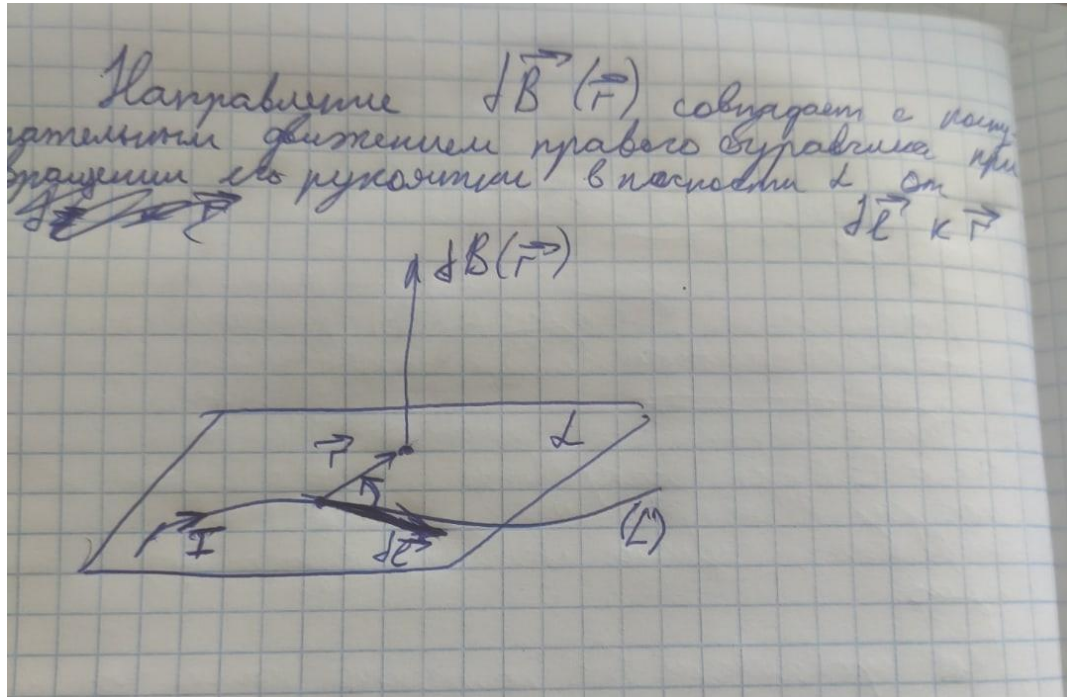 Направление dB⃗ (r⃗) совпадает с посту-
пательным движением правого буравчика при
вращении его рукоятки в плоскости α от
dl⃗ к r⃗
dB(r⃗)
α
r⃗
I
dl⃗
(L)